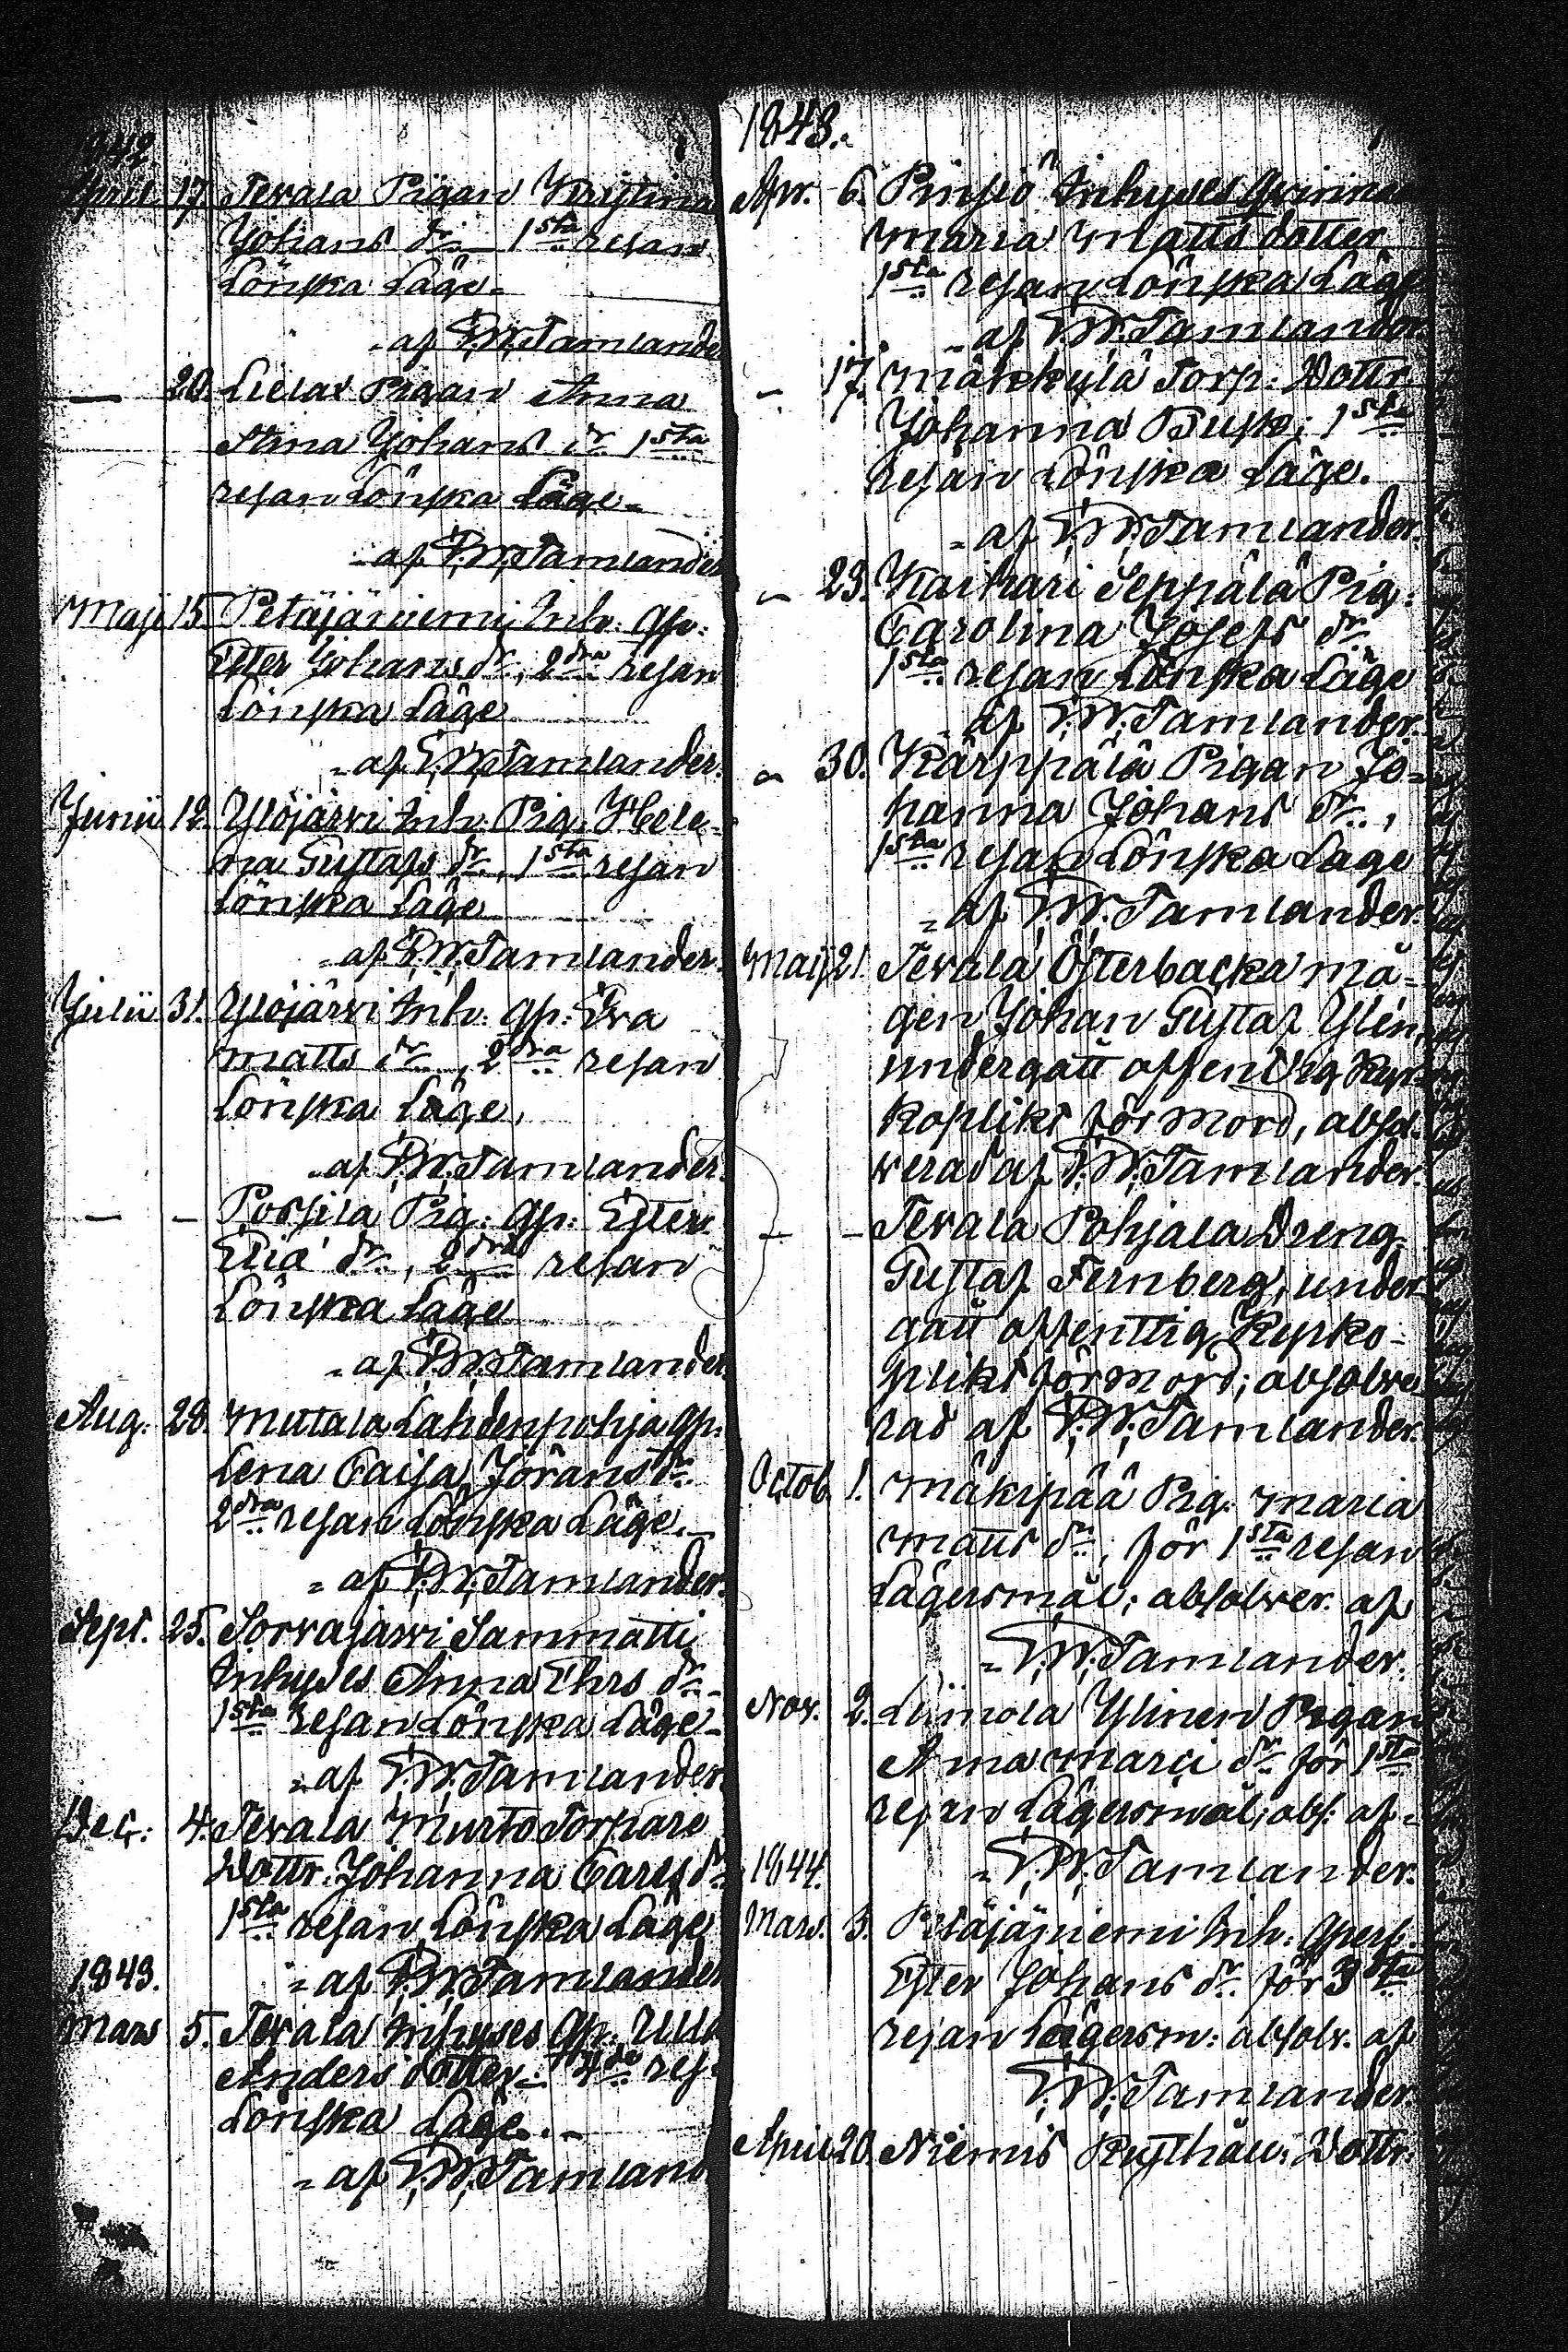 1842.
April 17. Tevala Pigan Kristina
Johans dr. 1sta resan
Lönska Läge.
af P.W. Tamlander
— 20. Lielax Pigan Anna
Stina Johans dr. 1sta
resan Lönska Läge.
af P.W. Tamlander
Maji 15. Petäjäniemi Inh. Qv:
Ester Johans dr., 2dra resan
Lönska Läge
af P.W. Tamlander.
Junii 12. Ylöjärvi Inh. Pig. Hele-
na Gustafs dr., 1sta resan
Lönska Läge
af P.W. Tamlander.
Julii 31. Ylöjärvi Inh. Qv: Eva
Matts dr., 2dra resan
Lönska Läge,
af P.W. Tamlander.
— — Porsila Pig: Qv: Ester
Eliæ dr., 2dra resan
Lönska Läge
af P.W. Tamlander
Aug. 28. Mutala Lahdenpohja Qv.
Lena Caisa Jörans dr.
2dra resan Lönska Läge.
af P.W. Tamlander.
Sept. 25. Sorvajärvi Sammatti
Inhyses Anna Ehrs dr.
1sta resan Lönska Läge
af P.W. Tamlander.
Dec: 4. Tevala Murto Torpare
Dottr. Johanna Carls dr.
1sta resan Lönska Läge
1843. af P.W. Tamlander
Mars 5. Tevala Inhyses Qv: Ulla
Anders dotter: 4de res.
Lönska Läge.
af P.W. Tamland
1843.
Apr. 6. Pinsiö Inhyses Qvinna
Maria Matts dotter
1sta resan Lönska Läge
af P.W. Tamlander
— 17. Mäkkylä Torp. Dottr.
Johanna Busk; 1sta
resan Lönska Läge.
af P.W. Tamlander.
— 23. Kaihari Seppälä Pig.
Carolina Josefs dr.
1sta resan Lönska Läge
af P.W. Tamlander.
— 30. Kärppälä Pigan Jo-
hanna Johans dr.,
1sta resan Lönska Läge
af P.W. Tamlander.
Maij 21. Tevala Österbacka må-
gen Johan Gustaf Ylén,
undergått offentlig Kyr-
koplikt för mord, absol-
verad af P.W. Tamlander.
— — Tevala Pohjala Dreng.
Gustaf Fernberg, under-
gått offentlig Kyrko-
plikt för mord; absolve-
rad af P.W. Tamlander.
Octob. 1. Mäkipää Pig. Maria
Matts dr., för 1sta resan
Lägersmål; absolver. af
P.W. Tamlander.
Nov. 2. Liimola Ylinen Pigan
Anna Marci dr. för 1sta
resan Lägersmål; abs: af
1844. P.W. Tamlander.
Mars. 3. Petäjäniemi Inh: Qvesp
Ester Johans dr. för 3dje
resan Lägersm: absolv. af
P.W. Tamlander.
April 20. Niemis Rusthåll: Dottr.